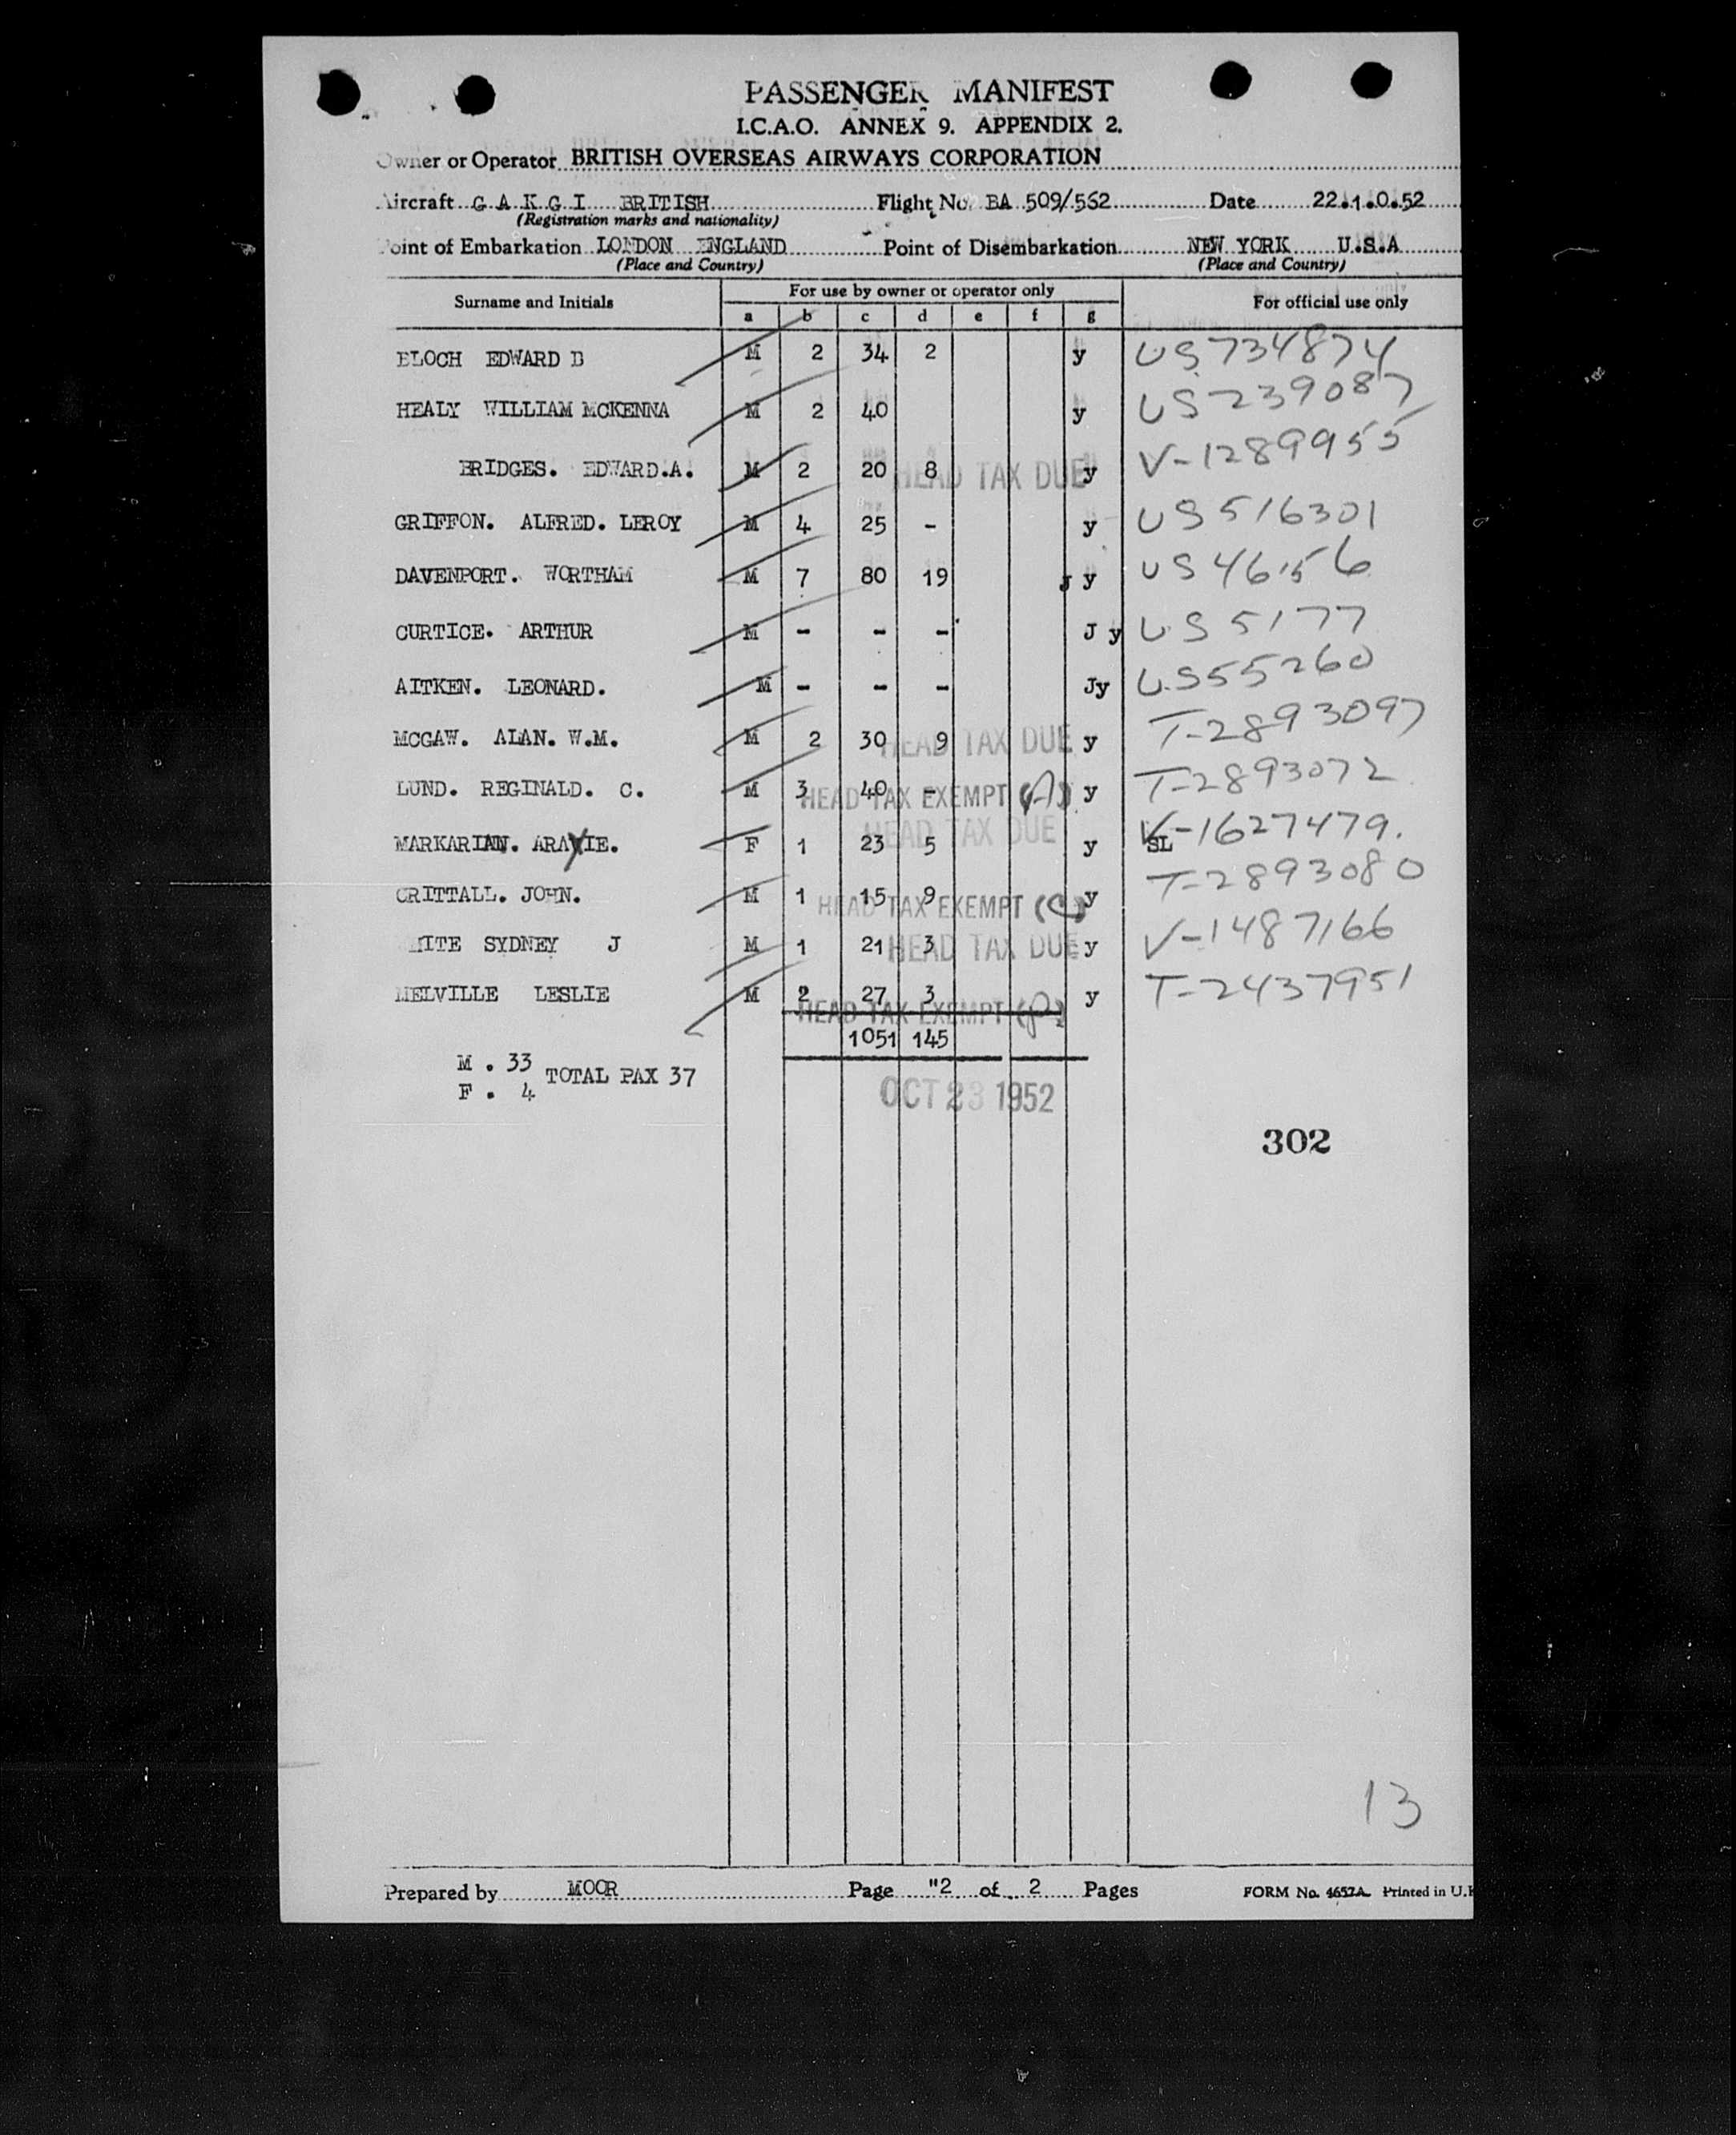 PASSENGER MANIFEST
I.C.A.O. ANNEX 9. APPENDIX 2.
Owner or Operator BRITISH OVERSEAS AIRWAYS CORPORATION
Aircraft G A K G I BRITISH Flight No. BA 509/562 Date 22.1.0.52
(Registration marks and nationality)
Point of Embarkation LONDON ENGLAND Point of Disembarkation NEW YORK U.S.A
(Place and Country) (Place and Country)
Surname and Initials For use by owner or operator only For official use only
a b c d e f g
BLOCH EDWARD B M 2 34 2 y US 734874
HEALY WILLIAM MCKENNA M 2 40 y US 239087
BRIDGES. EDWARD.A. M 2 20 8 HEAD TAX DUE y V-1289955
GRIFFON. ALFRED. LEROY M 4 25 - y US 516301
DAVENPORT. WORTHAM M 7 80 19 J y US 46156
CURTICE. ARTHUR M - - - J y US 5177
AITKEN. LEONARD. M - - - Jy US55260
MCGAW. ALAN. W.M. M 2 30 9 HEAD TAX DUE y T-2893097
LUND. REGINALD. C. M 3 40 - HEAD TAX EXEMPT (A) y T-2893072
HEAD TAX DUE
MARKARIAN. ARAXIE. F 1 23 5 y SL V-1627479.
CRITTALL. JOHN. M 1 15 9 HEAD TAX EXEMPT (C) y T-2893080
SYDNEY J M 1 21 3 HEAD TAX DUE y V-1487166
MELVILLE LESLIE M 2 27 3 y T-2437951
HEAD TAX EXEMPT
1051 145
M . 33
TOTAL PAX 37
F . 4
OCT 23 1952
302
13
Prepared by MOOR Page "2 of 2 Pages FORM No. 4657A Printed in U.K